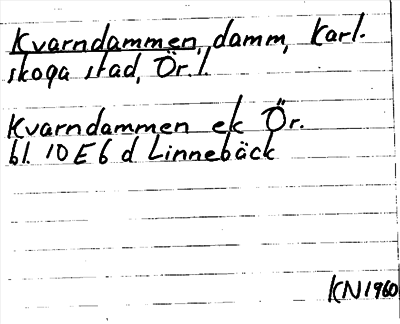 Kvarndammen, damm, Karl-
skoga stad, Ör. l.
Kvarndammen ek Ör.
bl. 10E6d Linnebäck
KN1960